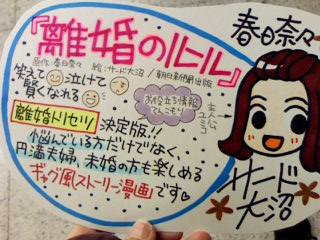 『離婚のルール』
原作:春日奈々 絵:サード大沼 / 朝日新聞出版
笑えて泣けて
賢くなれる
お役立ち情報
てんこもり
離婚トリセツ 決定版!!
悩んでいる方だけでなく、
円満夫婦、未婚の方も楽しめる
ギャグ風ストーリー漫画です♡
春日奈々
主人公
ユミコ
サード
大沼